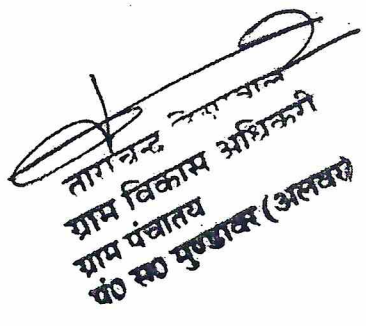 ताराचन्द
ग्राम विकास अधिकारी
ग्राम पंचायत
पं० स० मुण्डावर (अलवर)